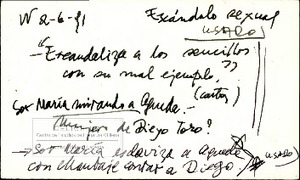 W 2-6-91
Escándalo sexual
USADO
"Escandaliza a los sencillos
con su mal ejemplo."
(cartos)
Sor María mirando a Agueda.-
Mujer de Diego Toro?
→ Sor María esclaviza a Agueda (USADO)
con chantaje contar a Diego.